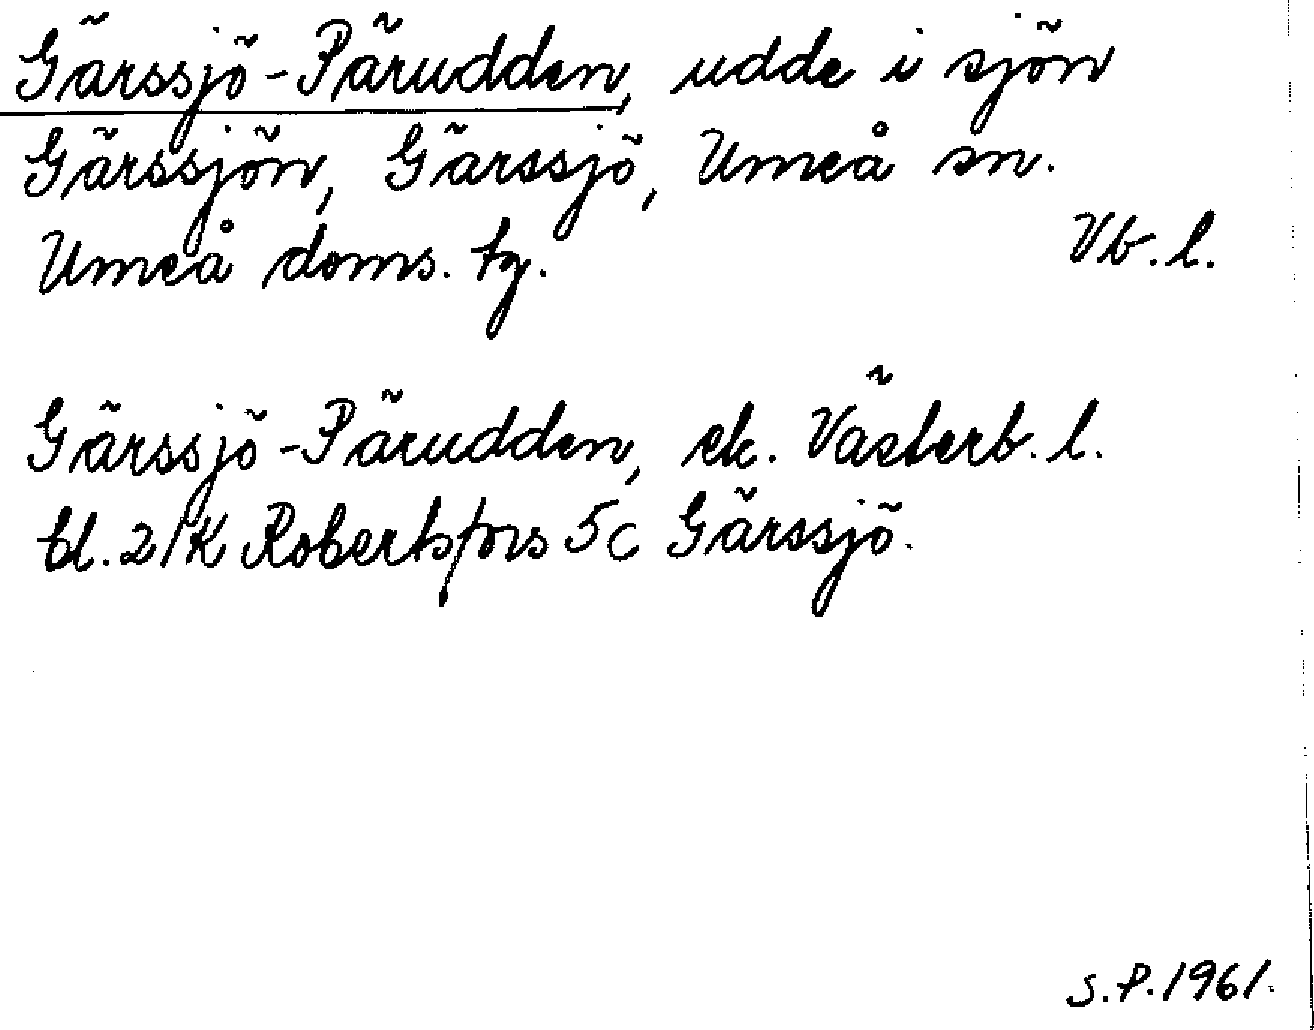 Gärssjö-Pärudden, udde i sjön
Gärssjön, Gärssjö, Umeå sn.
Umeå doms. tg. Vb. l.
Gärssjö-Pärudden, ek. Västerb. l.
bl. 21K Robertsfors 5c Gärssjö.
S.P. 1961.